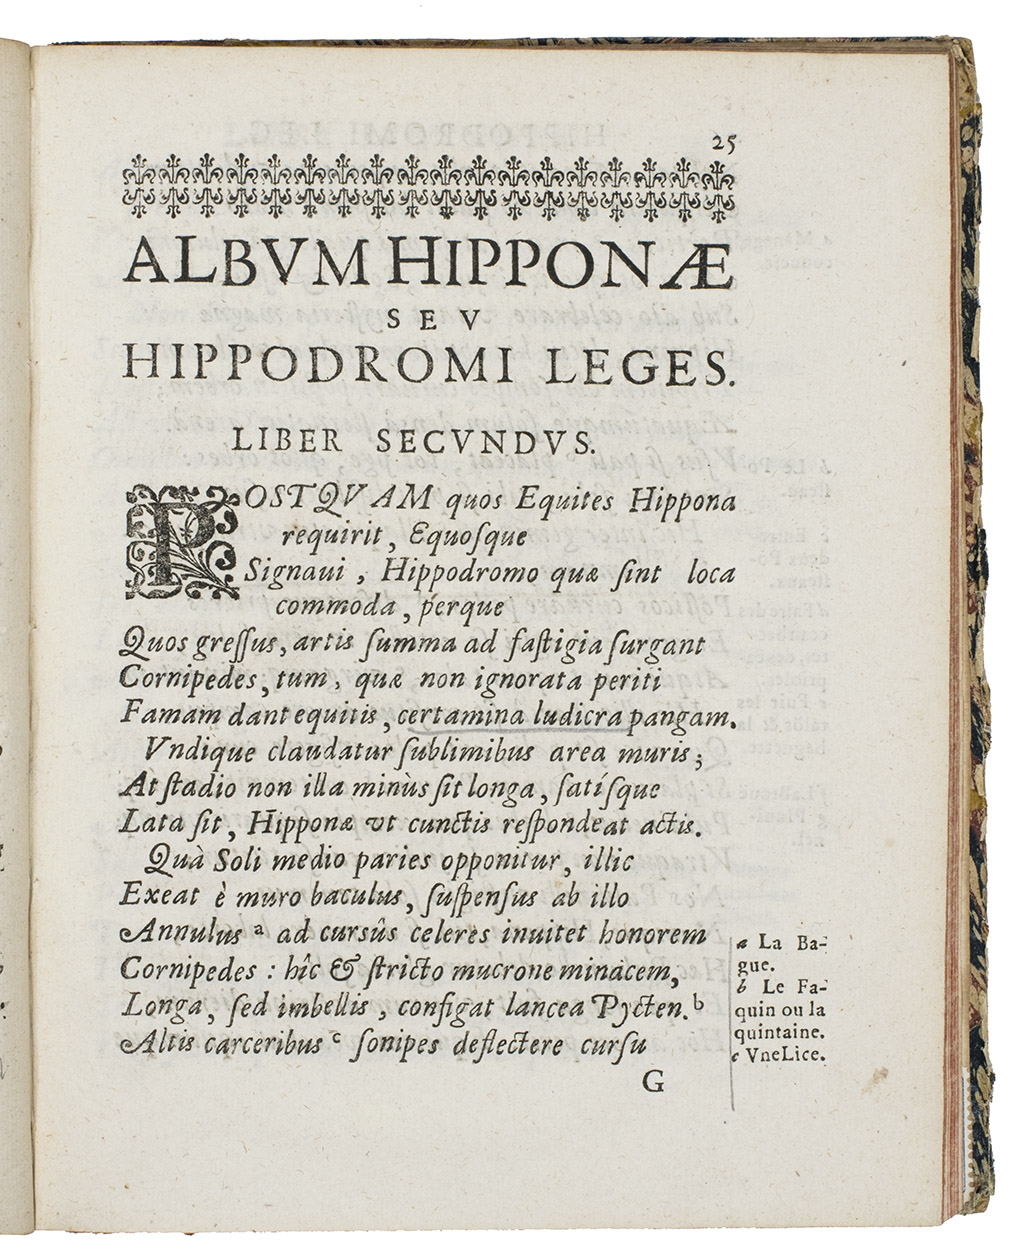 25
ALBVM HIPPONÆ
SEV
HIPPODROMI LEGES.
LIBER SECVNDVS.
POSTQVAM quos Equites Hippona
requirit, Equosque
Signaui, Hippodromo quæ sint loca
commoda, perque
Quos gressus, artis summa ad fastigia surgant
Cornipedes, tum, quæ non ignorata periti
Famam dant equitis, certamina ludicra pangam.
Vndique claudatur sublimibus area muris;
At stadio non illa minùs sit longa, satísque
Lata sit, Hipponæ vt cunctis respondeat actis.
Quà Soli medio paries opponitur, illic
Exeat è muro baculus, suspensus ab illo
Annulus a ad cursûs celeres inuitet honorem
Cornipedes : hîc & stricto mucrone minacem,
Longa, sed imbellis, configat lancea Pycten. b
Altis carceribus c sonipes deflectere cursu
G
a La Ba-
gue.
b Le Fa-
quin ou la
quintaine.
c Vne Lice.